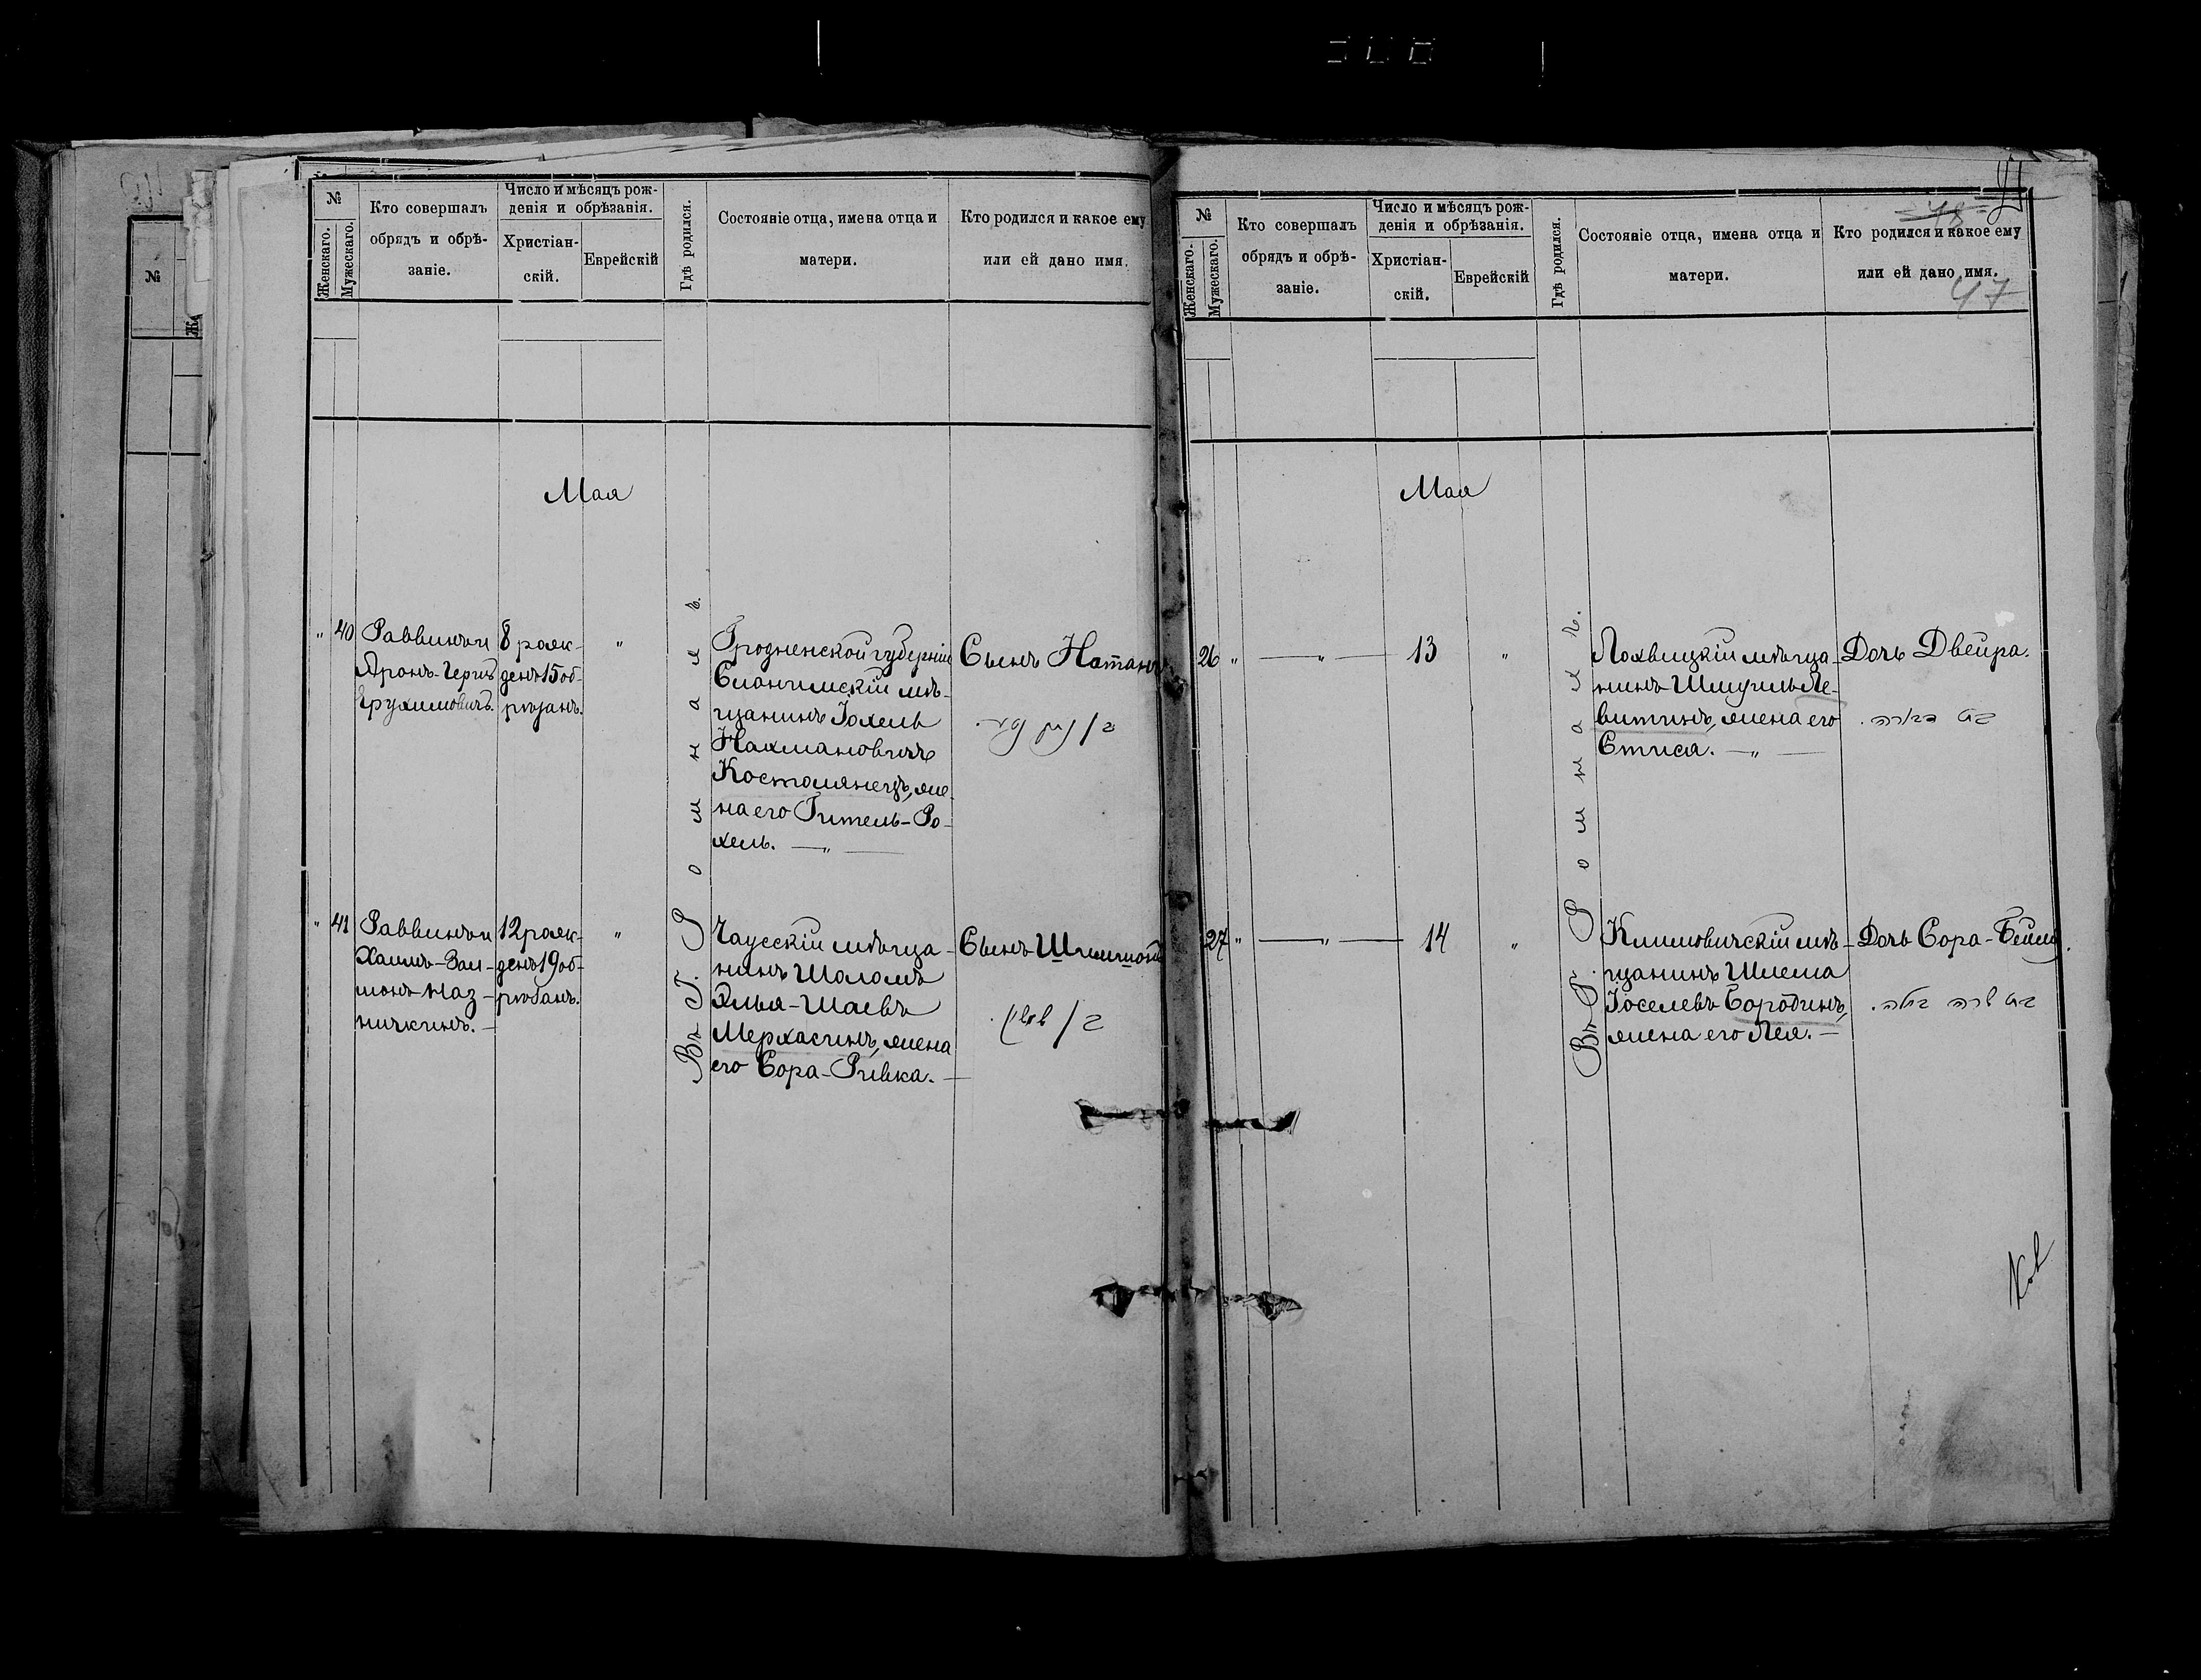 №
Женскаго.
Мужескаго.
Кто совершалъ
обрядъ и обрѣ-
заніе.
Число и мѣсяцъ рож-
денія и обрѣзанія.
Христіан-
скій.
Еврейскій
Гдѣ родился.
Состояніе отца, имена отца и
матери.
Кто родился и какое ему
или ей дано имя.
Мая
" 40
Раввинъ и
Аронъ-Герцъ
8 рож-
денъ 15 об-
рѣзанъ.
"
Въ Г. Ромнахъ.
Гродненской губерніи
Слонимскій мѣ-
щанинъ Іохель
Нахмановичъ
Костомянецъ, же-
на его Гитель-Ро-
хель. — " —
Сынъ Натанъ
" 41
Раввинъ и
Хаимъ-Зал-
монъ Маз-
ничкинъ. —
12 рож-
денъ 19 об-
рѣзанъ.
"
Чаусскій мѣща-
нинъ Шоломъ
Элья-Шаевъ
Мерхасинъ, жена
его Сора-Ривка. —
Сынъ Шимшонъ
ב/ שמשון.
№
Женскаго.
Мужескаго.
Кто совершалъ
обрядъ и обрѣ-
заніе.
Число и мѣсяцъ рож-
денія и обрѣзанія.
Христіан-
скій.
Еврейскій
Гдѣ родился.
Состояніе отца, имена отца и
матери.
Кто родился и какое ему
или ей дано имя.
48
47
Мая
26 "
— " —
13
"
Въ Г. Ромнахъ.
Лохвицкій мѣща-
нинъ Шмуиль Ле-
витинъ, жена его
Стися. — " —
Дочь Двейра.
בת דבורה.
27 "
— " —
14
"
Климовичскій мѣ-
щанинъ Шлема
Іоселевъ Бородинъ,
жена его Лея. —
Дочь Сора-Бейля.
בת שרה בילה.